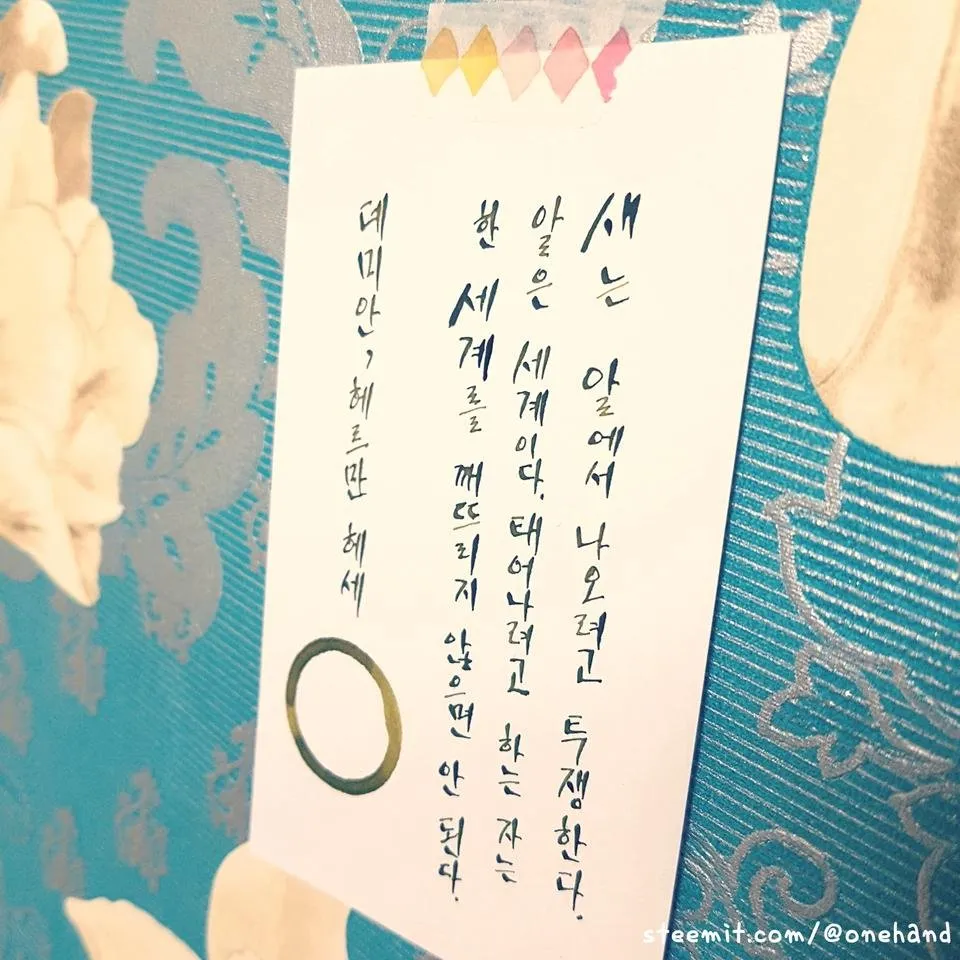 새는 알에서 나오려고 투쟁한다.
알은 세계이다. 태어나려고 하는 자는
한 세계를 깨뜨리지 않으면 안 된다.
데미안, 헤르만 헤세
steemit.com/@onehand